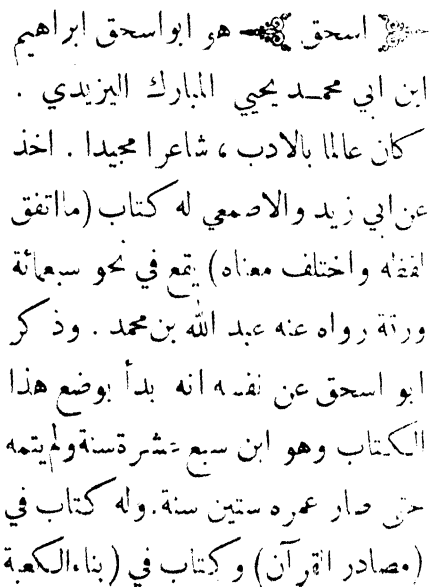 اسحق هو ابو اسحق ابراهيم
ابن ابي محمد يحيي المبارك اليزيدي .
كان عالما بالادب ، شاعرا مجيدا . اخذ
عن ابي زيد والاصمعي له كتاب (مااتفق
لفظه واختلف معناه) يقع في نحو سبعمائة
ورقة رواه عنه عبد الله بن محمد . وذكر
ابو اسحق عن نفسه انه بدأ بوضع هذا
الكتاب وهو ابن سبع عشرة سنة ولم يتمه
حتى صار عمره ستين سنة . وله كتاب في
(مصادر القرآن) وكتاب في (بناء الكعبة